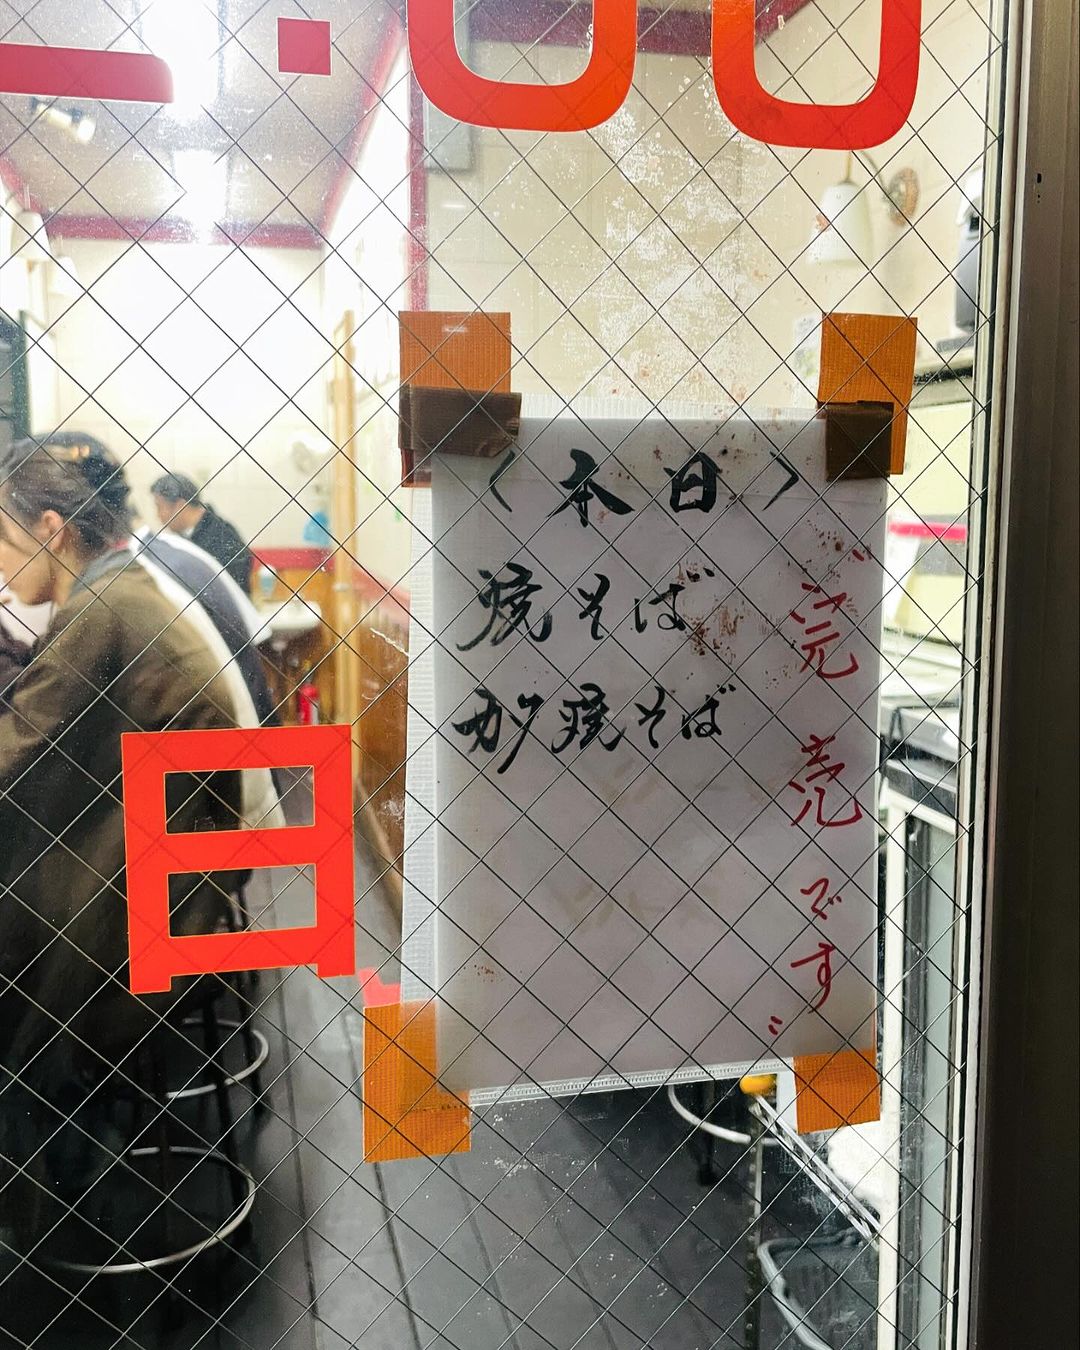 :00
〈本日〉
焼そば
カタ焼そば
〝完売です〟
日